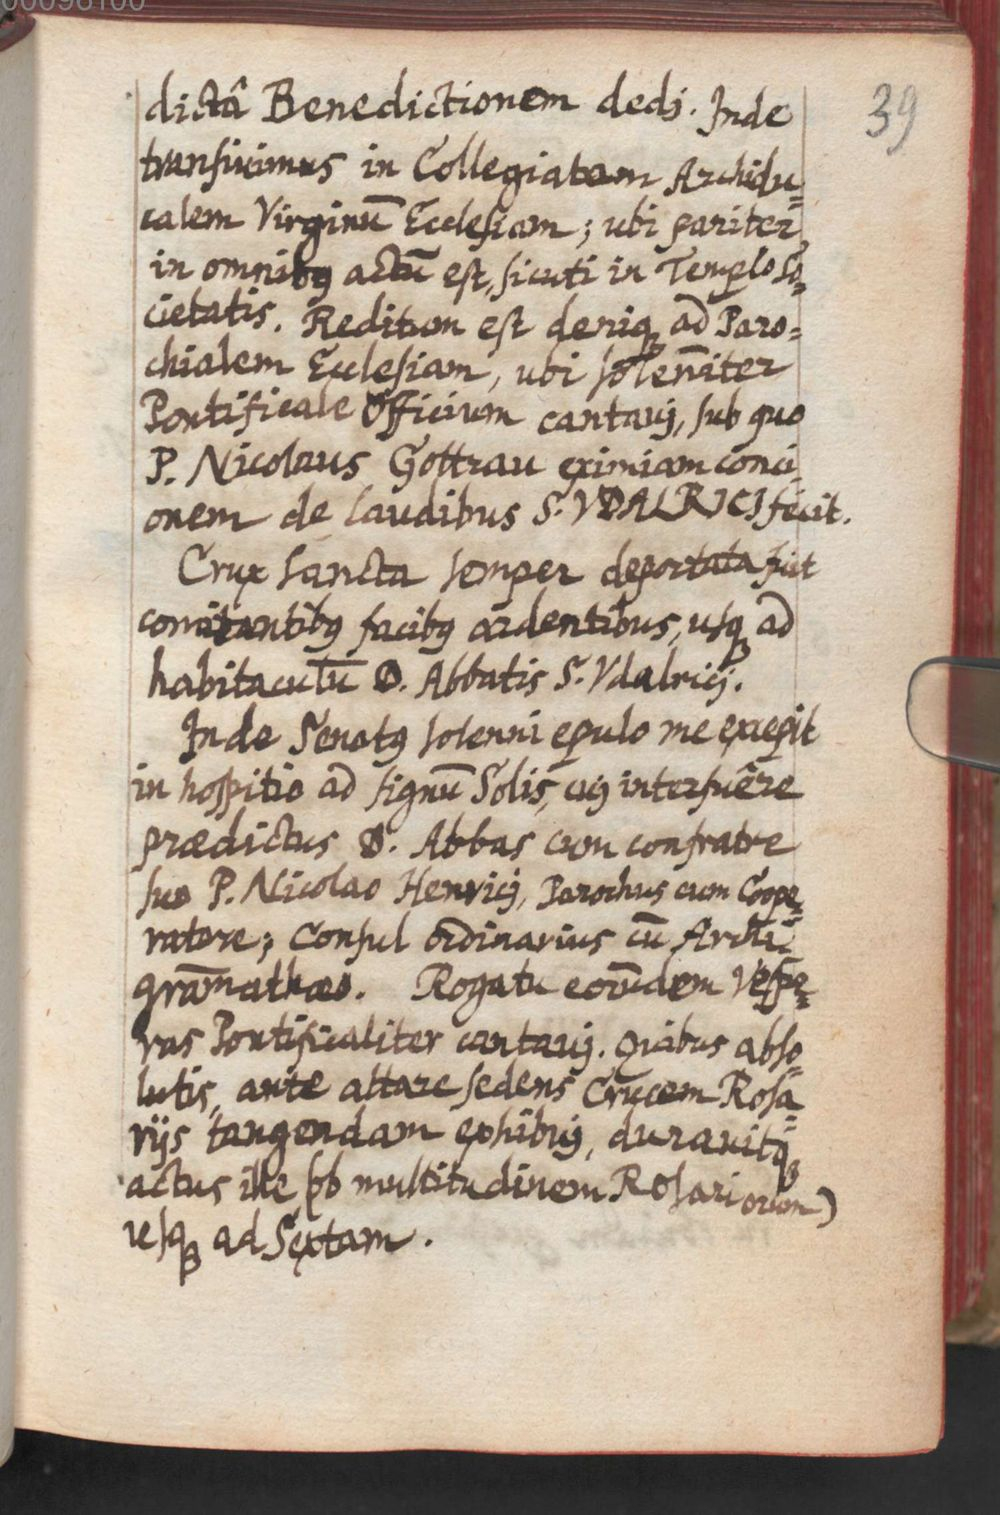 00098100
39
dictâ Benedictionem dedj. Inde
transivimus in Collegiatam Archidu=
calem Virginū Ecclesiam; ubi pariter
in omnibq actū est, sicuti in Templo So=
cietatis. Reditum est deniq ad Paro=
chialem Ecclesiam, ubi solen̄iter
Pontificale Officium cantavj, sub quo
P. Nicolaus Gottrau eximiam conci
onem de laudibus S. VDALRICI fecit.
Crux Sancta semper deportata fuit
comitantibq facibq ardentibus, usq ad
habitaculū D. Abbatis S. Vdalricj.
Inde Senatq solenni epulo me excepit
in hospitio ad signū Solis, cuj interfuêre
prædictus D. Abbas cum confratre
suo P. Nicolao Henricj, Parochus cum Coope=
ratore; Consul ordinarius cū Archi
gram̄athæo. Rogatu eorūdem Vespe=
ras Pontificaliter cantavj. Quibus abso=
lutis, ante altare sedens Crucem Rosa=
rijs tangendam exhibuj, duravitq
actus ille (ob multitudinem Rosariorum)
usq ad Sextam.